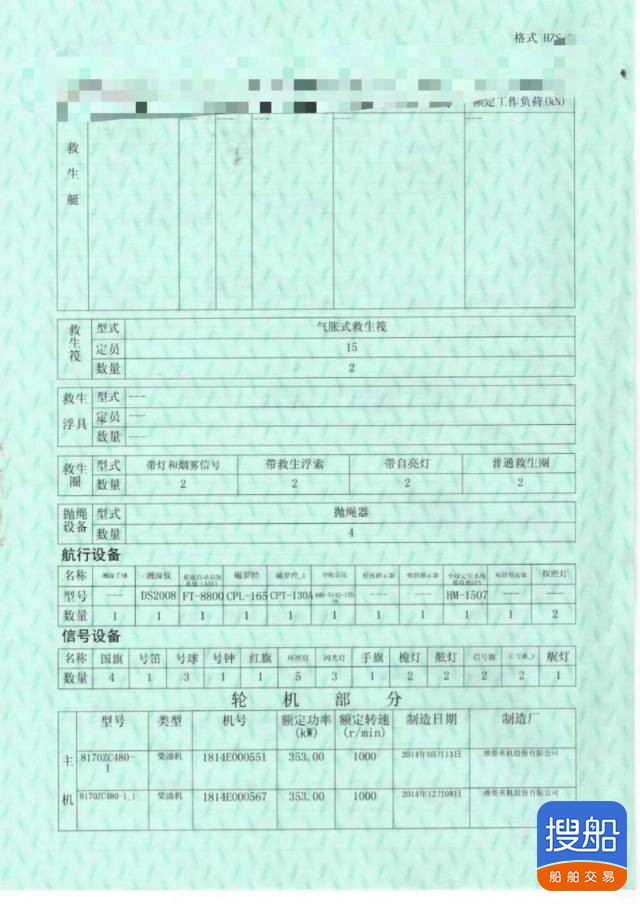 格式 HZS
额定工作负荷(kN)
救生艇
救生筏 型式 气胀式救生筏
定员 15
数量 2
救生浮具 型式 ---
定员 ---
数量 ---
救生圈 型式 带灯和烟雾信号 带救生浮索 带自亮灯 普通救生圈
数量 2 2 2 2
抛绳设备 型式 抛绳器
数量 4
航行设备
名称 测深手锤 测深仪 磁罗经 磁罗经_1 探照灯
型号 --- DS2008 FT-8800 CPL-165 CPT-130A --- --- HM-1507 ---
数量 1 1 1 1 1 1 1 1 1 1 2
信号设备
名称 国旗 号笛 号球 号钟 红旗 环照灯 闪光灯 手旗 桅灯 舷灯 信号旗 艉灯
数量 4 1 3 1 1 5 3 1 2 2 2 2 1
轮机部分
型号 类型 机号 额定功率(kW) 额定转速(r/min) 制造日期 制造厂
主机 8170ZC480-1 柴油机 1814E000551 353.00 1000 2014年05月13日 潍柴重机股份有限公司
8170ZC480-1_1 柴油机 1814E000567 353.00 1000 2014年12月08日 潍柴重机股份有限公司
搜船
船舶交易